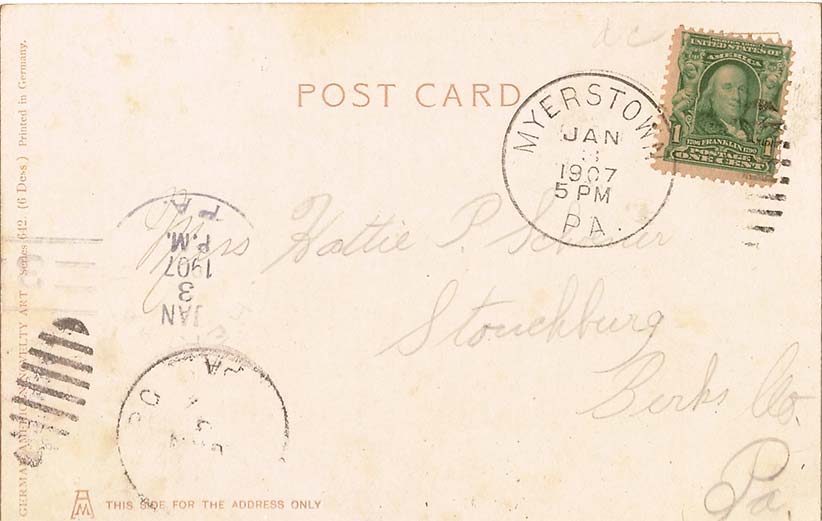 POST CARD
UNITED STATES OF
AMERICA
1 1
FRANKLIN
POSTAGE
ONE CENT
MYERSTOWN
JAN
3
1907
5 PM
PA.
Hattie P.
Stouchburg
Berks Co.
Pa.
JAN
3
1907
P.M.
PA.
GERMAN AMERICAN NOVELTY ART Series 642. (6 Dess.) Printed in Germany.
THIS SIDE FOR THE ADDRESS ONLY